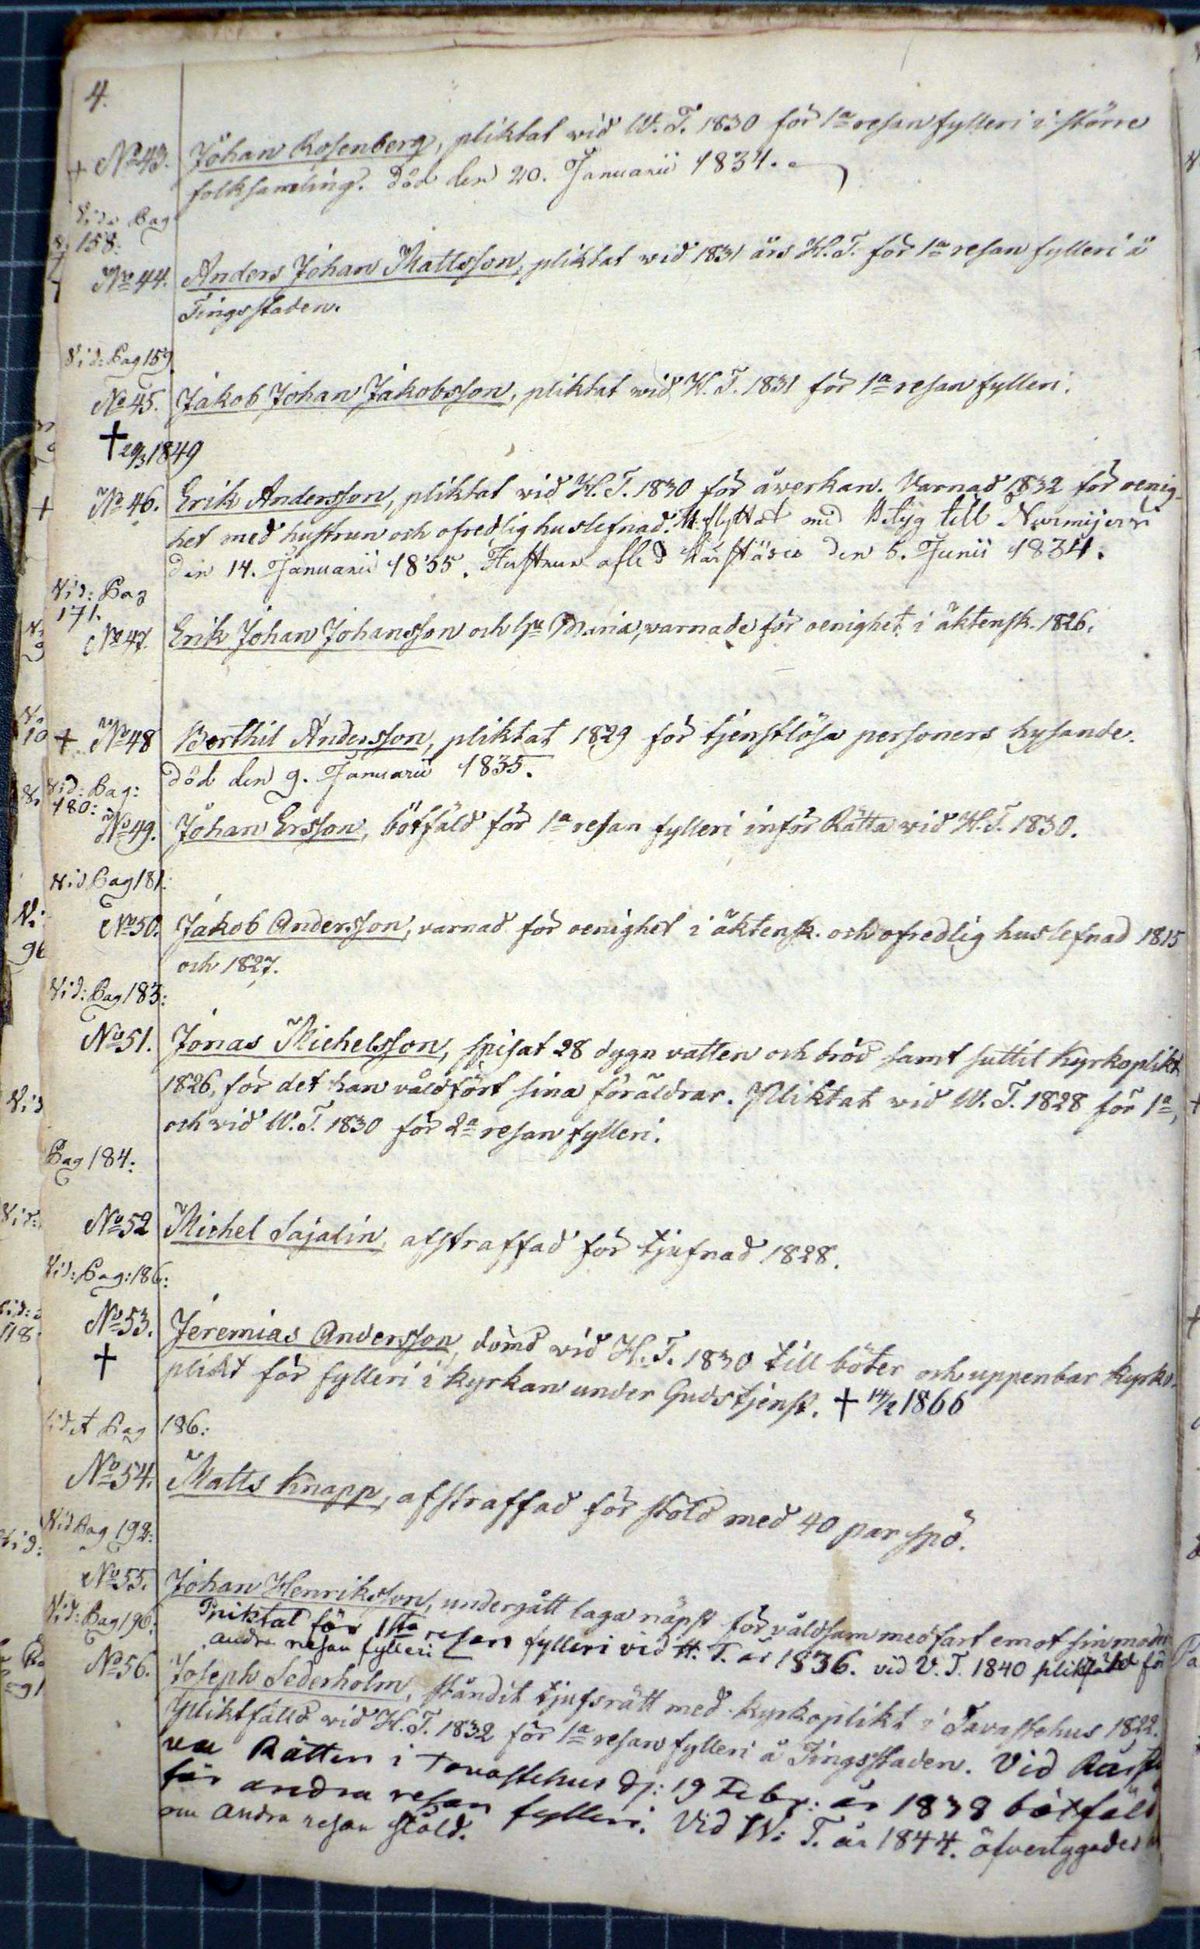 4.
+ No 43. Johan Rosenberg, pliktat wid W. T. 1830 för 1a resan fylleri i större
folksamling. Död den 20. Januarii 1834.
Vide Pag
158.
No 44. Anders Johan Mattsson, pliktat wid 1831 års H. T. för 1a resan fylleri å
Tingsstaden.
Vid: Pag 159
No 45. Jakob Johan Jakobsson, pliktat wid H. T. 1831 för 1a resan fylleri.
† 29/3 1849
+ No 46. Erik Andersson, pliktat vid H. T. 1830 för åwerkan. Varnad 1832 för oenig-
het med hustrun och ofredlig huslefnad. flyttat med Betyg till Nurmijervi
den 14. Januarii 1835. Hustrun afled den 5. Junii 1834.
Vid: Pag
171.
No 47. Erik Johan Johansson och Maria, varnade för oenighet i äktensk. 1826.
+ No 48 Berthil Andersson, pliktat 1829 för tjenstlösa personers hysande.
död den 9. Januarii 1835.
Vid: Pag:
180:
No 49. Johan Ersson, bötfäld för 1a resan fylleri inför Rätta wid H. T. 1830.
Vid Pag 181:
No 50. Jakob Andersson, varnad för oenighet i äktensk. och ofredlig huslefnad 1815
och 1827.
Vid: Pag 183:
No 51. Jonas Michelsson, spisat 28 dygn vatten och bröd samt suttit Kyrkoplikt
1826, för det han våldfört sina föräldrar. Pliktat vid W. T. 1828 för 1a,
och vid W. T. 1830 för 2a resan fylleri.
Pag 184:
No 52 Michel Sajalin, afstraffad för tjufnad 1828.
Vid: Pag: 186:
No 53. Jeremias Andersson, dömd vid H. T. 1830 till böter och uppenbar kyrko-
† plikt för fylleri i kyrkan under Gudstjenst. † 14/2 1866
Vid Pag 186:
No 54. Matts Knapp, afstraffad för stöld med 40 par spö.
Vid Pag 192:
No 55. Johan Henriksson, undergått laga näpst för våldsam medfart emot sin moder
Vid: Pag 196: Pliktat för 1sta resan fylleri vid H. T. år 1836. vid V. T. 1840 pliktfäld för
andra resan fylleri
No 56. Joseph Sederholm, ståndit tjufsrätt med kyrkoplikt i Tavastehus 1822.
Pliktfälld vid H. T. 1832 för 1a resan fylleri å Tingsstaden. Vid
Rätten i Tavastehus d: 19 Febr: år 1838 bötfäld
för andra resan fylleri. Vid W: T. år 1844. öfvertygades
om andra resan stöld.